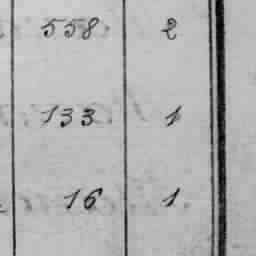 558 2
133 1
16 1